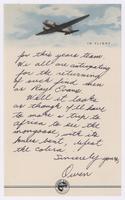 IN FLIGHT
for this years team.
We all are anticipating
for the returning
of such find men
as Ray Evans.
Well it looks
as though I'll have
to make a trip to
africa to see the
mongoose, with its
, upset
the cobra.
Sincerely yours,
Owen